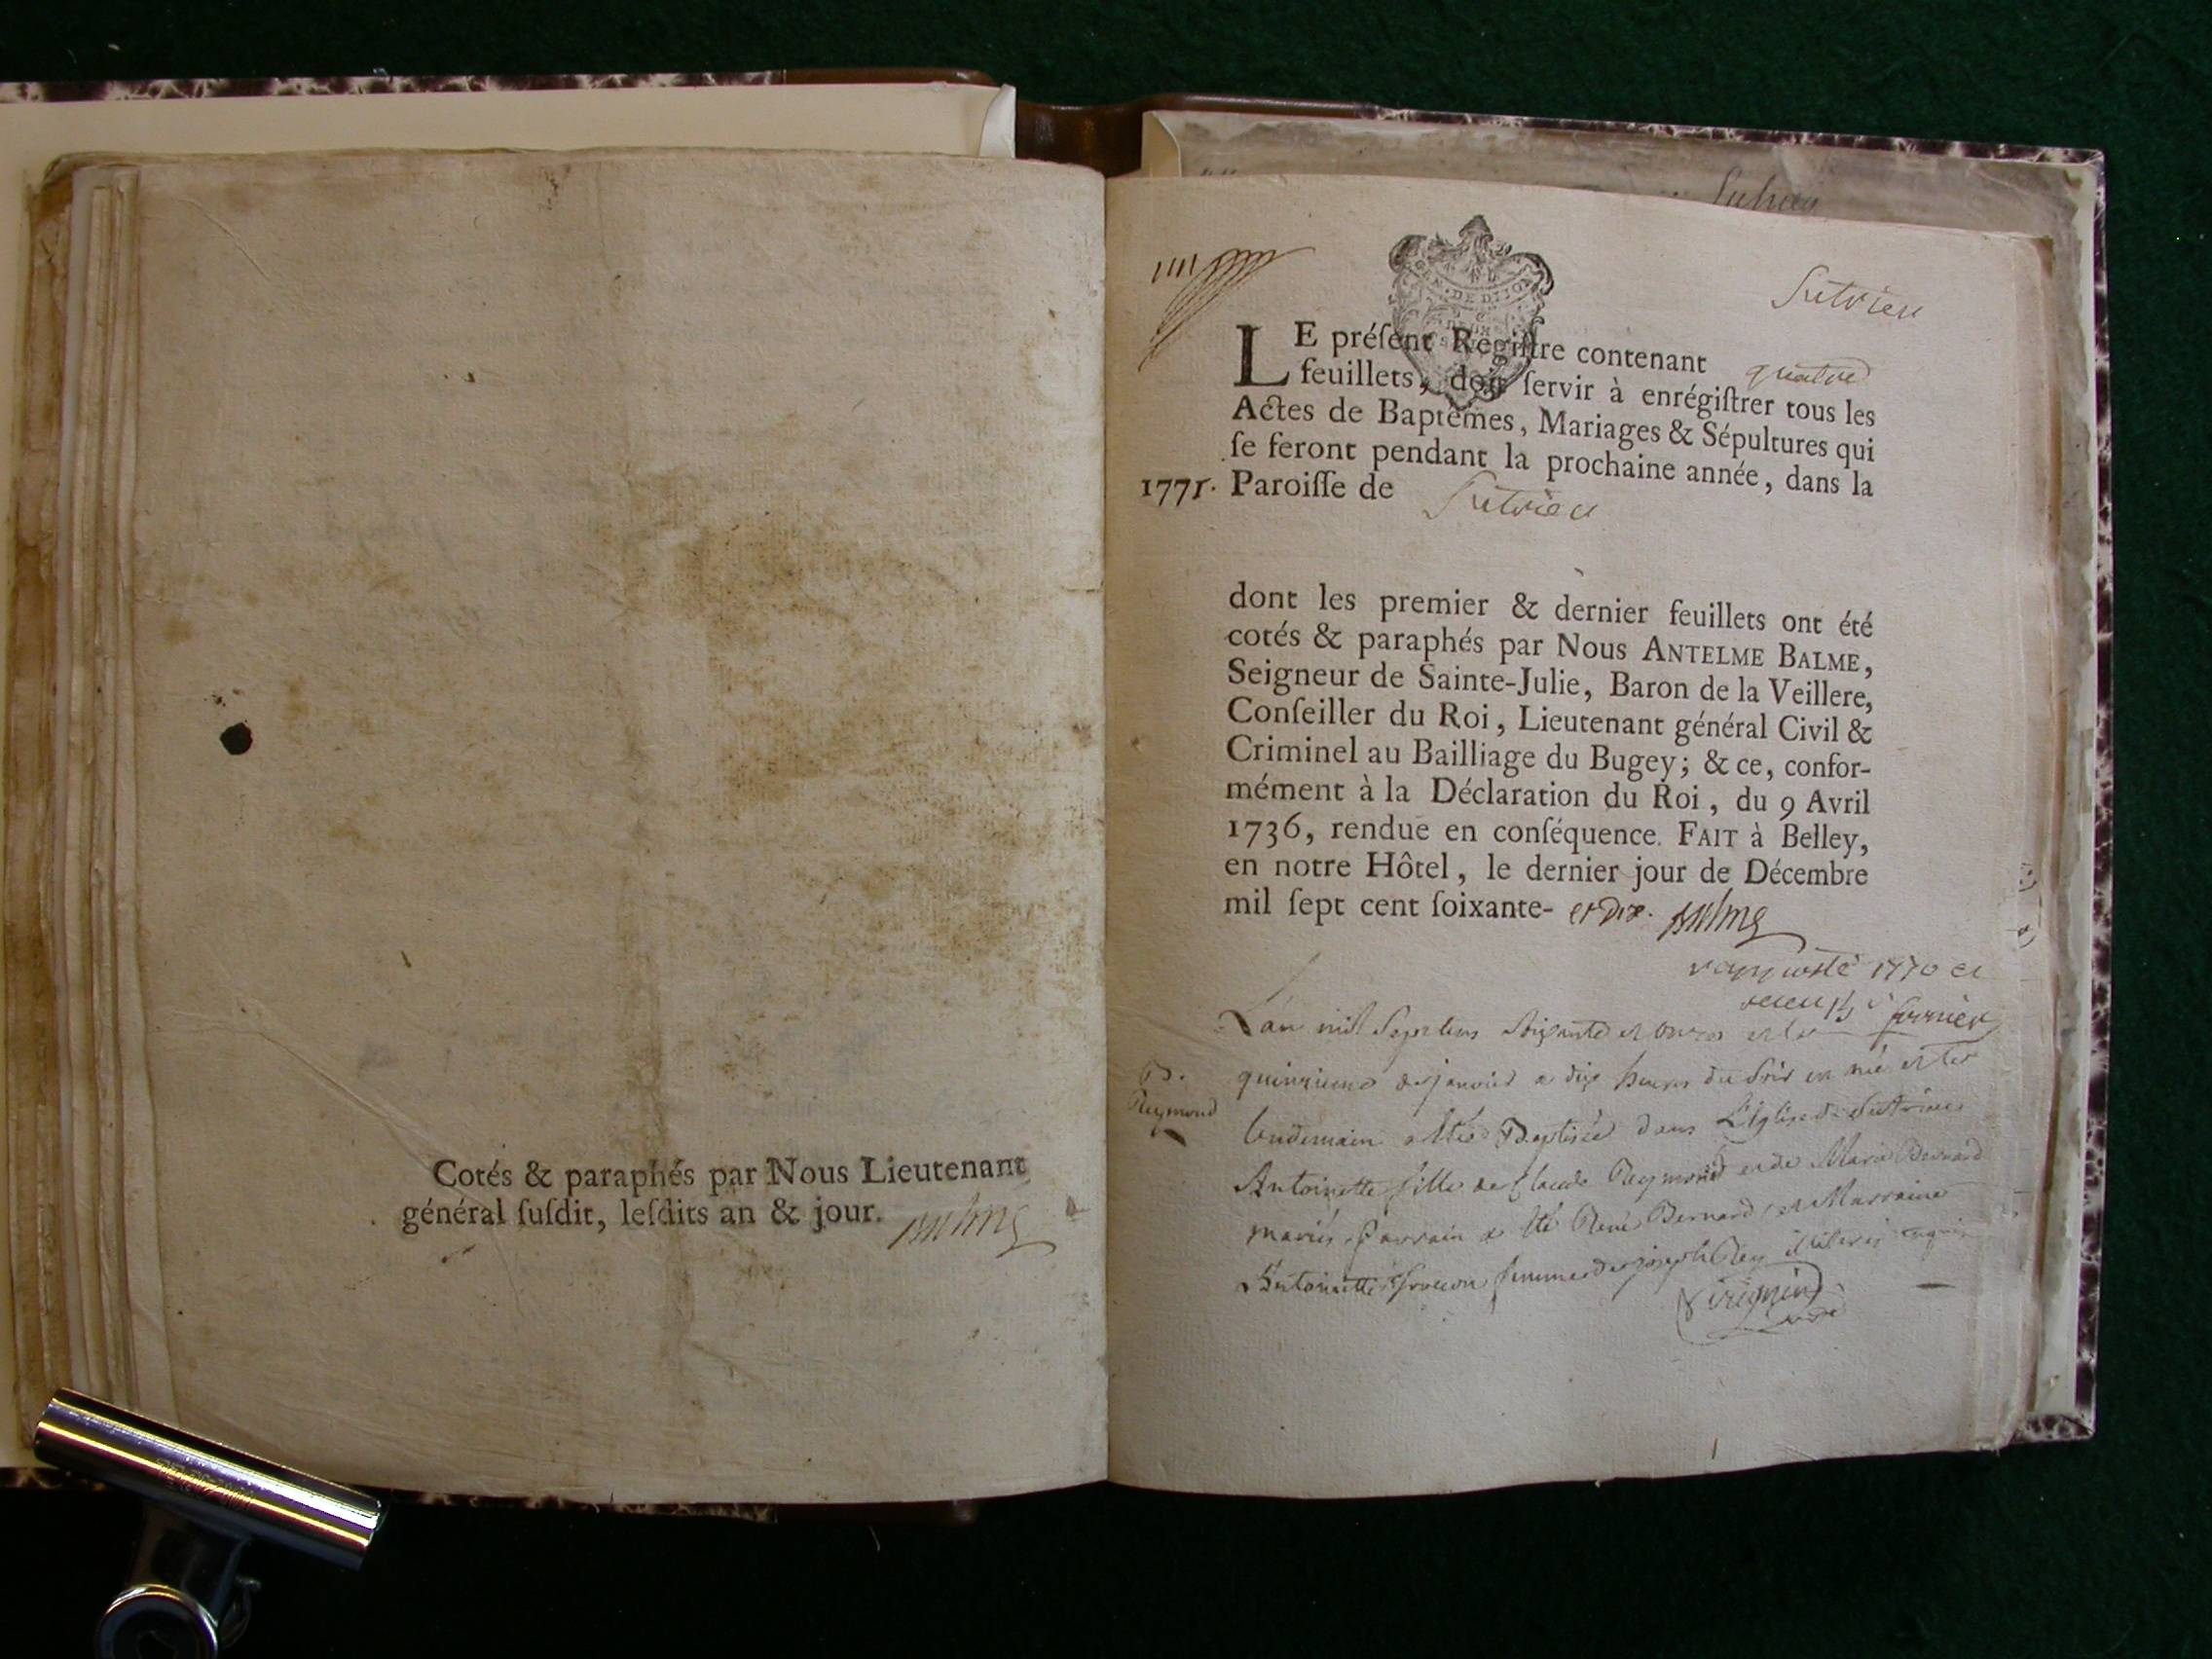 Cotés & paraphés par Nous Lieutenant
général ſuſdit, leſdits an & jour.
Balme
Sutrieu
LE préſent Regiſtre contenant quatre
feuillets, doit ſervir à enrégiſtrer tous les
Actes de Baptêmes, Mariages & Sépultures qui
ſe feront pendant la prochaine année, dans la
1771. Paroiſſe de Sutrieu
dont les premier & dernier feuillets ont été
cotés & paraphés par Nous ANTELME BALME,
Seigneur de Sainte-Julie, Baron de la Veillere,
Conſeiller du Roi, Lieutenant général Civil &
Criminel au Bailliage du Bugey; & ce, confor-
mément à la Déclaration du Roi, du 9 Avril
1736, rendue en conſéquence. FAIT à Belley,
en notre Hôtel, le dernier jour de Décembre
mil ſept cent ſoixante- et dix. Balme
rapporté 1770 et
receu
L'an mil Sept cens Soixante et onze et le
quinzieme de janvier a dix heures du soir est née et le
B.
Reymond
lendemain a été Baptisée dans L'église de Sutrieu
Antoinette fille de Claude Reymond et de Marie Bernard
mariés. Parrain a été René Bernard, et Marraine
Antoinette femme de joseph Rey illiterés enquis
curé